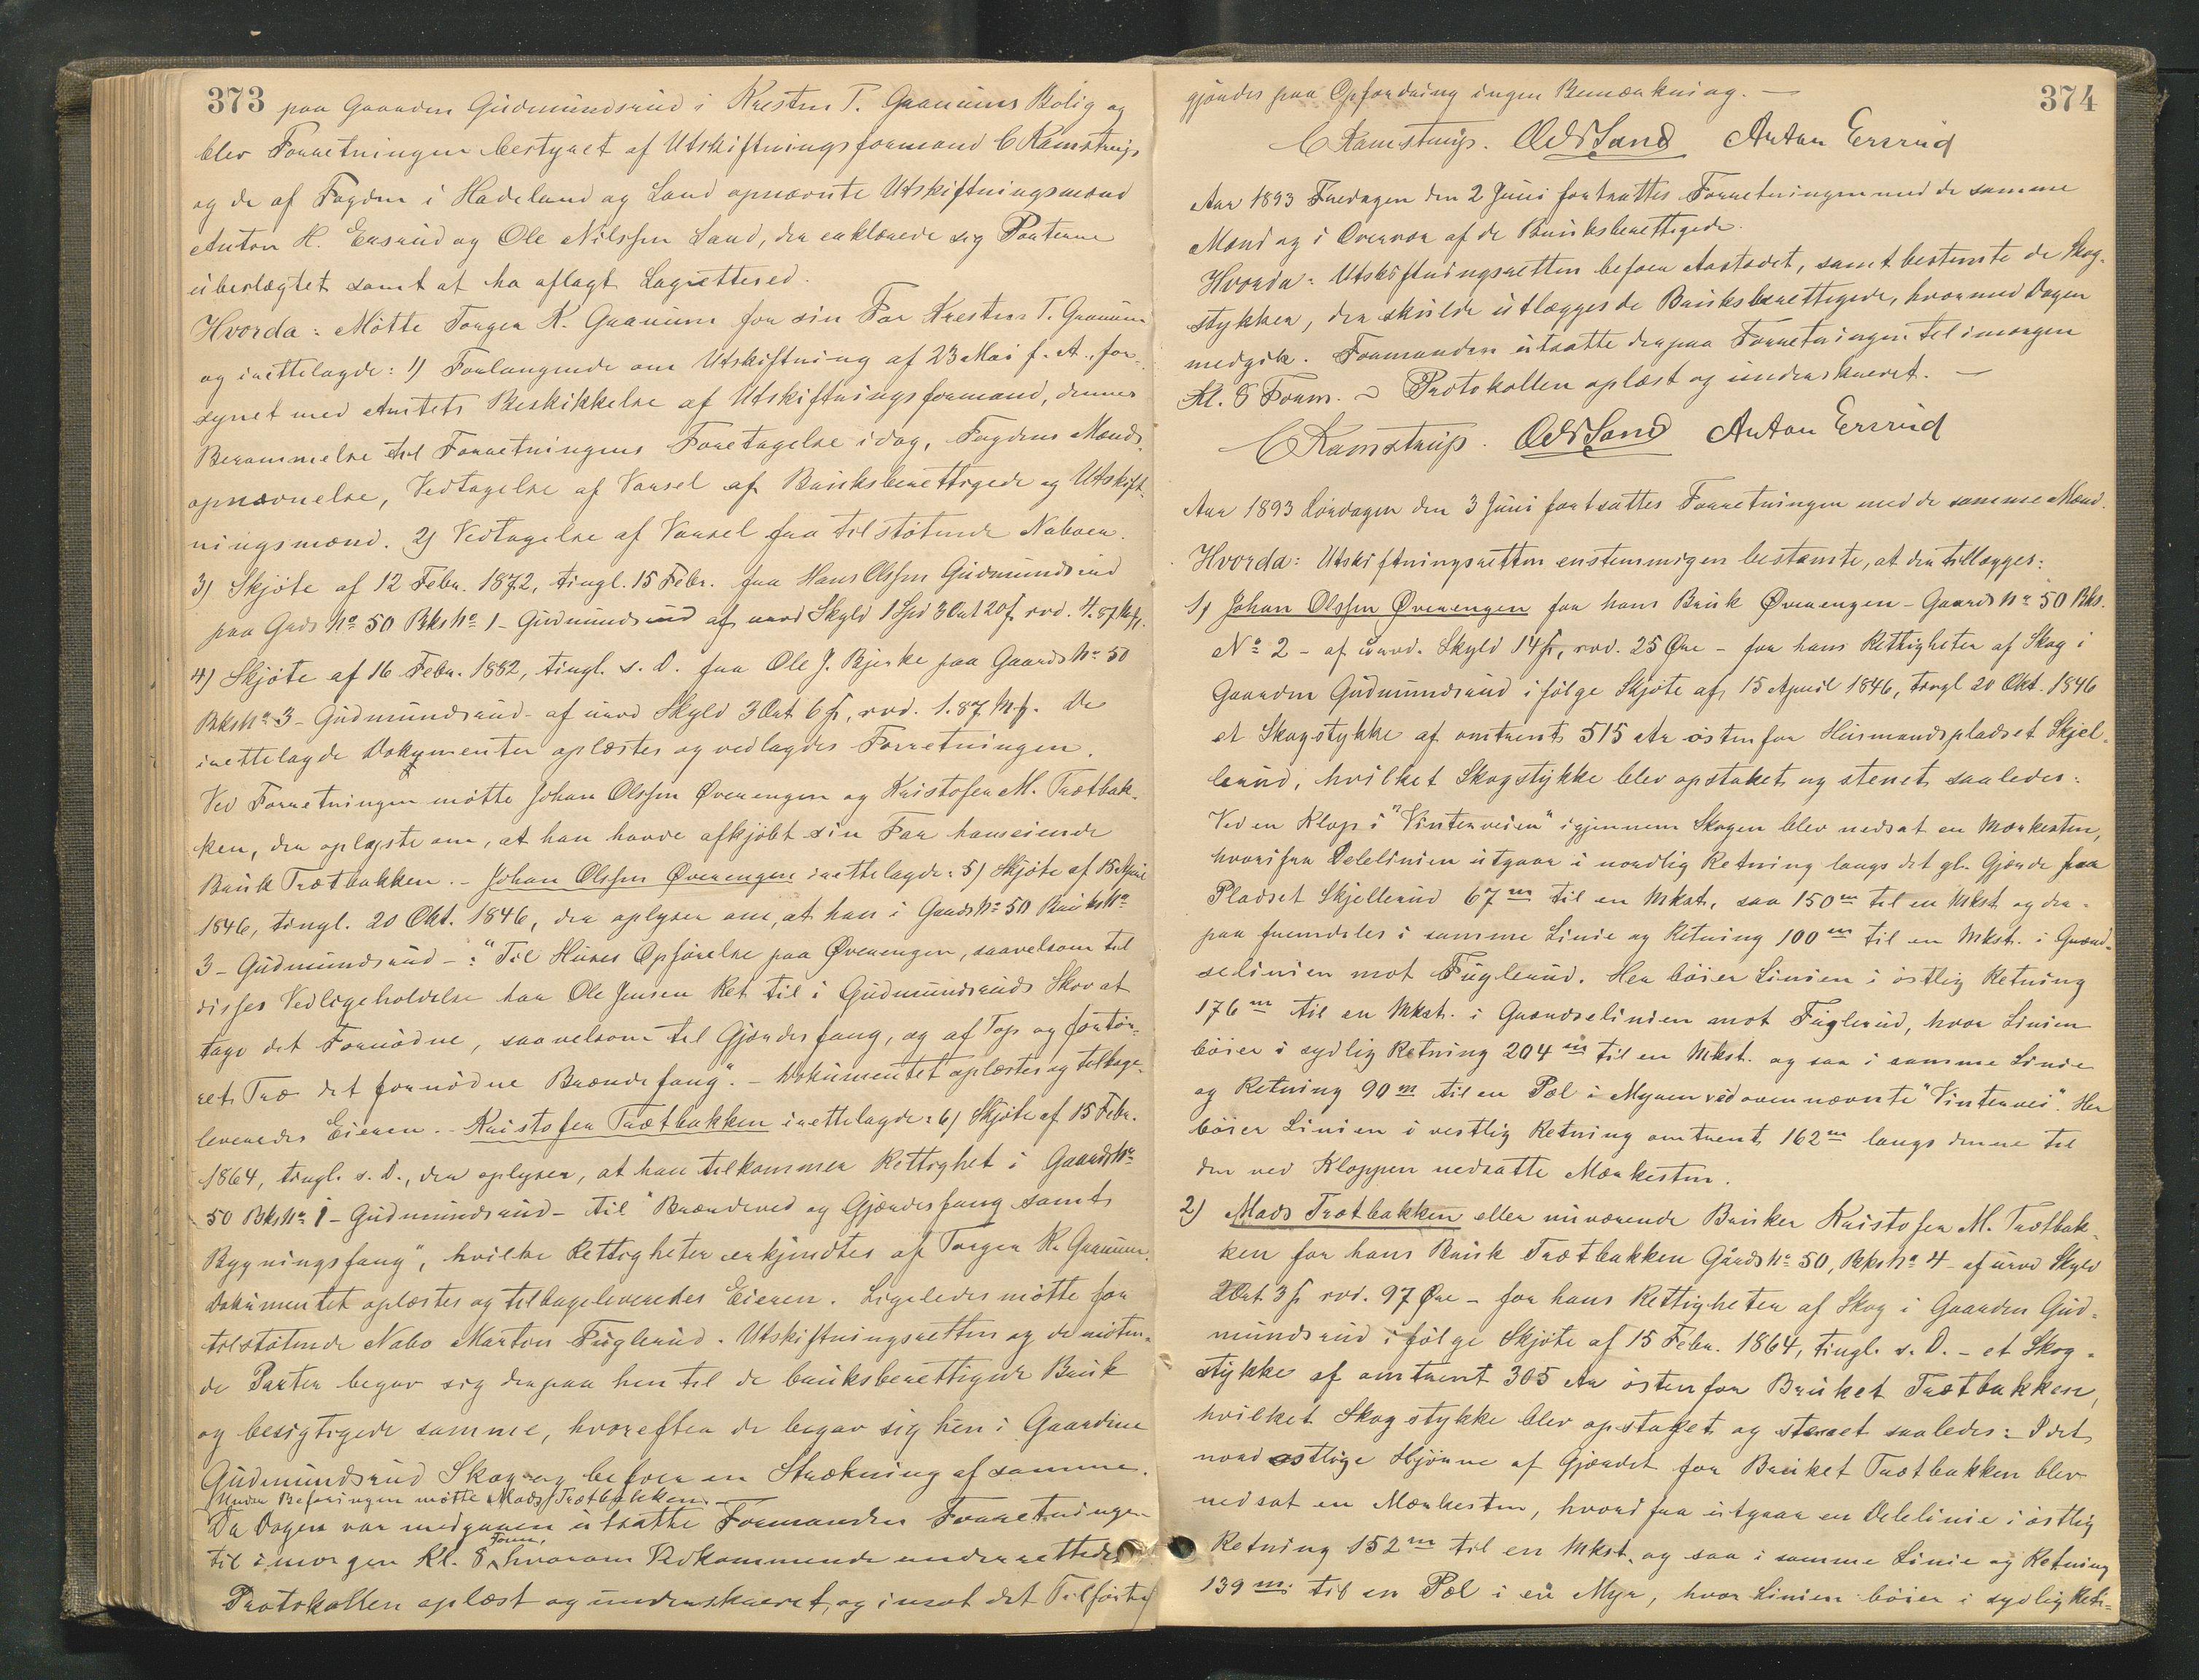 373 paa Gaarden Gudmundsrud i Kresten T. Granums Bolig og
blev Forretningen bestyret af Utskiftningsformand C Ramstrup
og de af Fogden i Hadeland og Land opnævnte Utskiftningsmænd
Anton H. Ensrud og Ole Nilssen Sand, der erklærede sig Parterne
ubeslægtet samt at ha aflagt Lagrettesed.
Hvorda: Mötte Torger K. Granum for sin Far Kresten T. Granum
og irettelagde: 1) Forlangende om Utskiftning af 23 Mai f. A., for-
synet med Amtets Beskikkelse af Utskiftningsformand, dennes
Berammelse til Forretningens Foretagelse idag, Fogdens Mænds-
opnævnelse, Vedtagelse af Varsel af Bruksberettigede og Utskift-
ningsmænd. 2) Vedtagelse af Varsel fra tilstötende Naboer.
3) Skjöte af 12 Febr. 1872, tingl. 15 Febr. fra Hans Olssen Gudmundsrud
paa Gards No 50 Bks No 1 - Gudmundsrud af urvd Skyld 1 Spd 3 Ort 20 ß, rvd. 4.87 Mk.
4) Skjöte af 16 Febr. 1882, tingl. s. D. fra Ole J. Bjerke paa Gaards No 50
Bks No 3 - Gudmundsrud - af urvd Skyld 3 Ort 6 ß, rvd. 1.87 Mk. De
irettelagde Dokumenter oplæstes og vedlagdes Forretningen.
Ved Forretningen mötte Johan Olssen Øverengen og Kristofer M. Trætbak-
ken, der oplyste om, at han havde afkjöbt sin Far hanseiende
Bruk Trætbakken. - Johan Olssen Øverengen irettelagde: 5) Skjöte af 15 April
1846, tingl. 20 Okt. 1846, der oplyser om, at han i Gaards No 50 Bruks No
3 - Gudmundsrud -: "Til Huses Opförelse paa Øverengen, saavelsom til
disses Vedligeholdelse har Ole Jensen Ret til i Gudmundsruds Skov at
tage det Fornödne, saavelsom til Gjærdesfang, og af Top og fortör-
ret Træ det fornödne Brændefang". - Dokumentet oplæstes og tilbage-
leveredes Eieren. - Kristofer Trætbakken irettelagde: 6) Skjöte af 15 Febr.
1864, tingl. s. D., der oplyser, at han tilkommer Rettighet i Gaards No
50 Bks No 1 - Gudmundsrud - til "Brændeved og Gjærdesfang samt
Bygningsfang", hvilke Rettigheter erkjendtes af Torger K. Granum.
Dokumentet oplæstes og tilbageleveredes Eieren. Ligeledes mötte for
tilstötende Nabo Marton Fuglerud. Utskiftningsretten og de möten-
de Parter begav sig derpaa hen til de bruksberettigede Bruk
og besigtigede samme, hvorefter de begav sig hen i Gaardene
Gudmundsrud Skog og beforer en Strækning af samme.
Under Beforingen mötte Mads Trætbakken.
Da Dagen var medgaaen utsatte Formanden Forretningen
til imorgen Kl. 8 Form, hvorom Vedkommende underrettedes
Protokollen oplæst og underskreret, og imot det Tilförte
374
gjordes paa Opfordring ingen Bemærkning. -
C Ramstrup. ONSand Anton Ersrud
Aar 1893 Fredagen den 2 Juni fortsattes Forretningen med de samme
Mænd og i Overvær af de Bruksberettigede.
Hvorda: Utskiftningsretten beforer Aastedet, samt bestemte de Skog-
stykker, der skulde utlægges de Bruksberettigede, hvormed Dagen
medgik. Formanden utsatte derpaa Forretningen til imorgen
Kl. 8 Form. - Protokollen oplæst og underskreret. -
C Ramstrup. ONSand Anton Ersrud
Aar 1893 Lördagen den 3 Juni fortsattes Forretningen med de samme Mænd.
Hvorda: Utskiftningsretten enstemmigen bestemte, at der tillægges:
1) Johan Olssen Øverengen for hans Bruk Øverengen - Gaards No 50 Bks.
No 2 - af urvd. Skyld 14 ß, rvd. 25 Øre - for hans Rettigheter af Skog i
Gaarden Gudmundsrud ifölge Skjöte af 15 April 1846, tingl 20 Okt. 1846
et Skogstykke af omtrent 515 Ar östenfor Husmandspladset Skjel-
lerud, hvilket Skogstykke blev opstaket og stenet saaledes:
Ved en Klop i "Vinterveien" igjennem Skogen blev nedsat en Mærkesten,
hvorifra Delelinien utgaar i nordlig Retning langs det gl. Gjærde fra
Pladset Skjellerud 67 m til en Mkst., saa 150 m til en Mkst. og der-
paa fremdeles i samme Linie og Retning 100 m til en Mkst. i Grænd-
selinien mot Fuglerud. Her böier Linien i östlig Retning
176 m til en Mkst. i Grændselinien mot Fuglerud, hvor Linien
böier i sydlig Retning 204 m til en Mkst. og saa i samme Linie
og Retning 90 m til en Pæl i Myren ved ovennævnte "Vintervei". Her
böier Linien i vestlig Retning omtrent 162 m langs denne til
den ved Kloppen nedsatte Mærkesten.
2) Mads Trætbakken eller nuværende Bruker Kristofer M. Trætbak-
ken for hans Bruk Trætbakken Gårds No 50, Bks No 4 - af urvd Skyld
2 Ort 3 ß rvd. 97 Øre - for hans Rettigheter af Skog i Gaarden Gud-
mundsrud ifölge Skjöte af 15 Febr. 1864, tingl. s. D. - et Skog-
stykke af omtrent 305 Ar östenfor Bruket Trætbakken,
hvilket Skogstykke blev opstaket og stenet saaledes: I det
nordostlige Hjörne af Gjærdet for Bruket Trætbakken blev
nedsat en Mærkesten, hvorifra utgaar en Delelinie i östlig
Retning 152 m til en Mkst. og saa i samme Linie og Retning
139 m. til en Pæl i en Myr, hvor Linien böier i sydlig Ret-